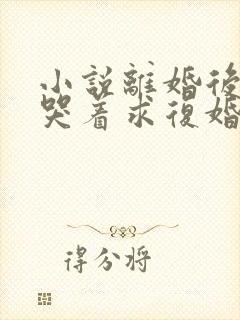 小説離婚後
哭着求復婚
得分将